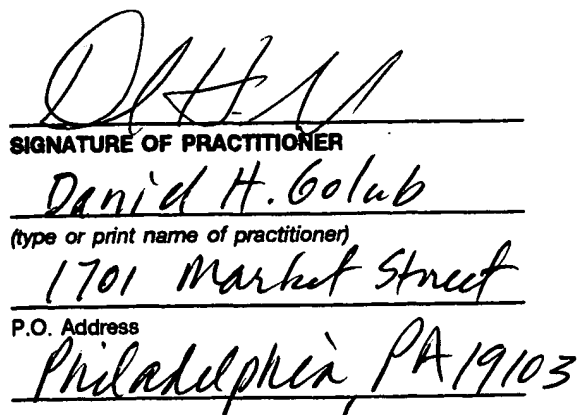 SIGNATURE OF PRACTITIONER
Daniel H. Golub
(type or print name of practitioner)
1701 Market Street
P.O. Address
Philadelphia, PA 19103